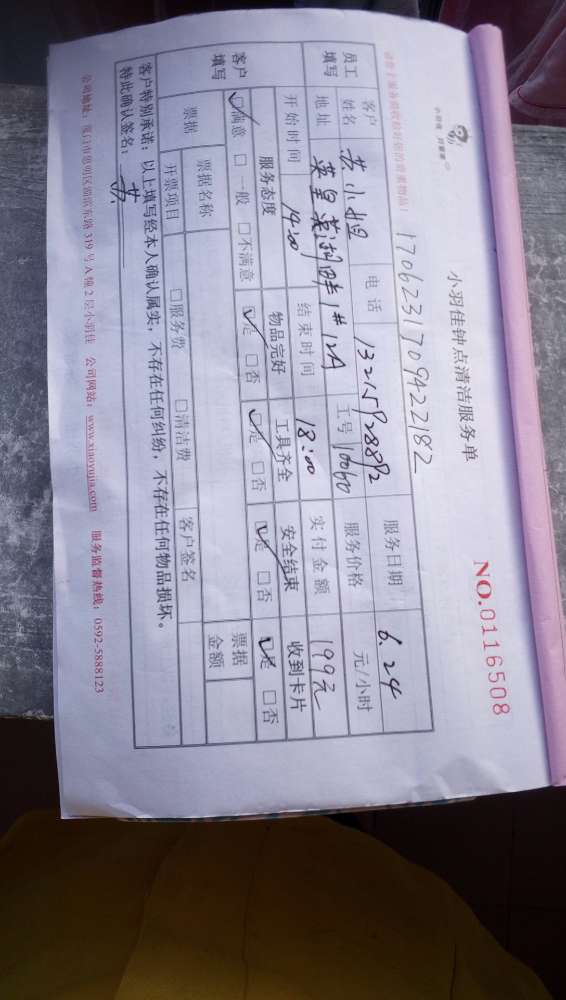 小羽佳 好管家
小羽佳钟点清洁服务单
NO.0116508
1706231709422182
员工填写 客户姓名 苏小姐 电话 13215928892 服务日期 6.24
地址 1#12A 工号 10060 服务价格 元/小时
开始时间 14:00 结束时间 18:00 实付金额 199元
客户填写 服务态度 物品完好 工具齐全 安全结束 收到卡片
☑满意 □一般 □不满意 ☑是 □否 ☑是 □否 ☑是 □否 ☑是 □否
票据 票据名称 票据金额
开票项目 □服务费 □清洁费 客户签名
客户特别承诺：以上填写经本人确认属实，不存在任何纠纷，不存在任何物品损坏。
特此确认签名：苏
公司网站：www.xiaoyujia.com 服务监督热线：0592-5888123